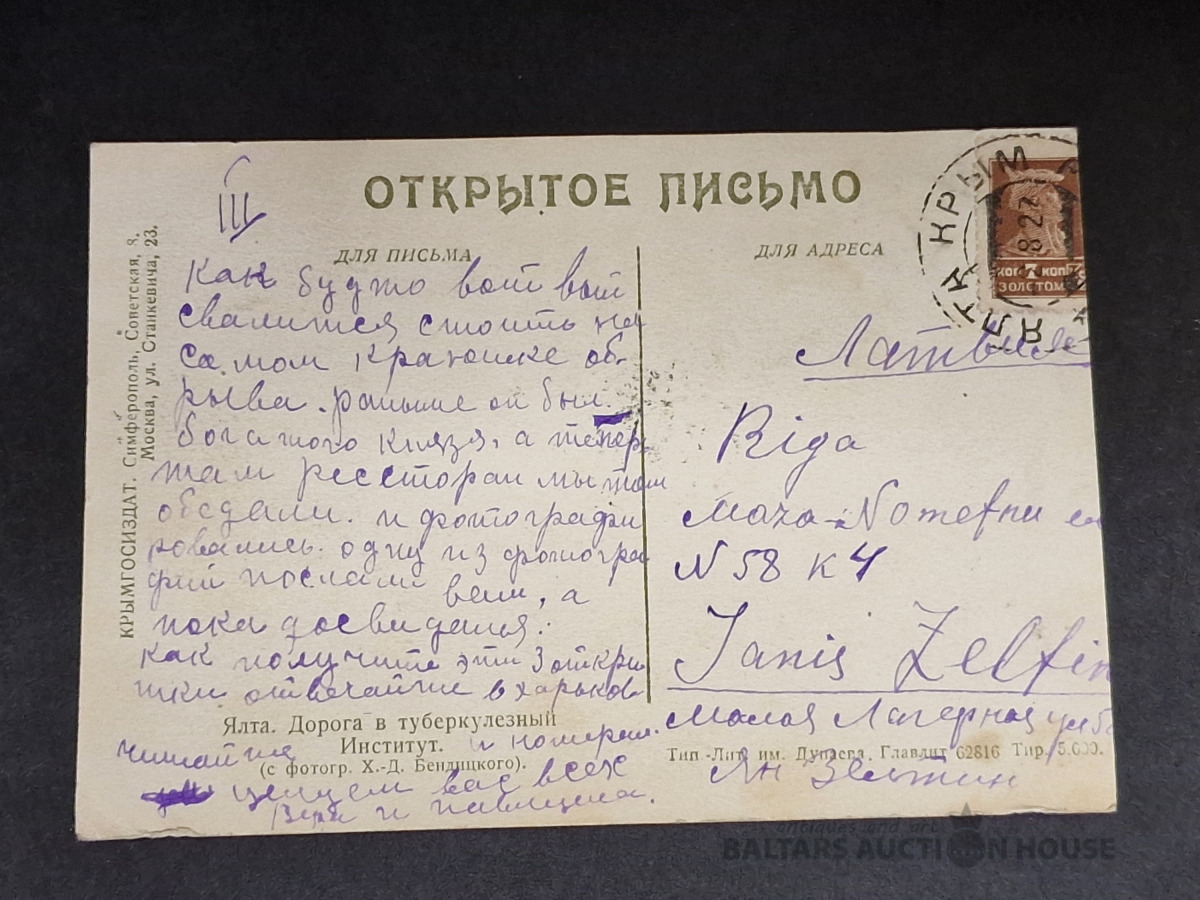 III
ОТКРЫТОЕ ПИСЬМО
ДЛЯ ПИСЬМА
Как будто вот вот
свалится стоить на
самом краюшке об-
рыва. раньше он был
богатого князя, а тепер
там ресторан мы там
обедали. и фотографи
ровались. одну из фотогра
фий послали вам, а
пока досвиданья.
Как получите эти 3 откры
тки отвечайте в харьков
Ялта. Дорога в туберкулезный
Институт.
(с фотогр. Х.-Д. Бендицкого).
читайте и номерам.
целуем вас всех
Вера и
КРЫМГОСИЗДАТ. Симферополь, Советская, 8.
Москва, ул. Станкевича, 23.
ДЛЯ АДРЕСА
ЯЛТА КРЫМ
8 27
КОП 7 КОП
ЗОЛОТОМ
Латвия
Riga
Maza-Nometnu
N 58 к 4
Janis Zeltin
Малая Лагерная ул
Ян Зелтин
Тип.-Лит. им. Дунаева. Главлит 62816 Тир. 5.000.
antiques and art
BALTARS AUCTION HOUSE